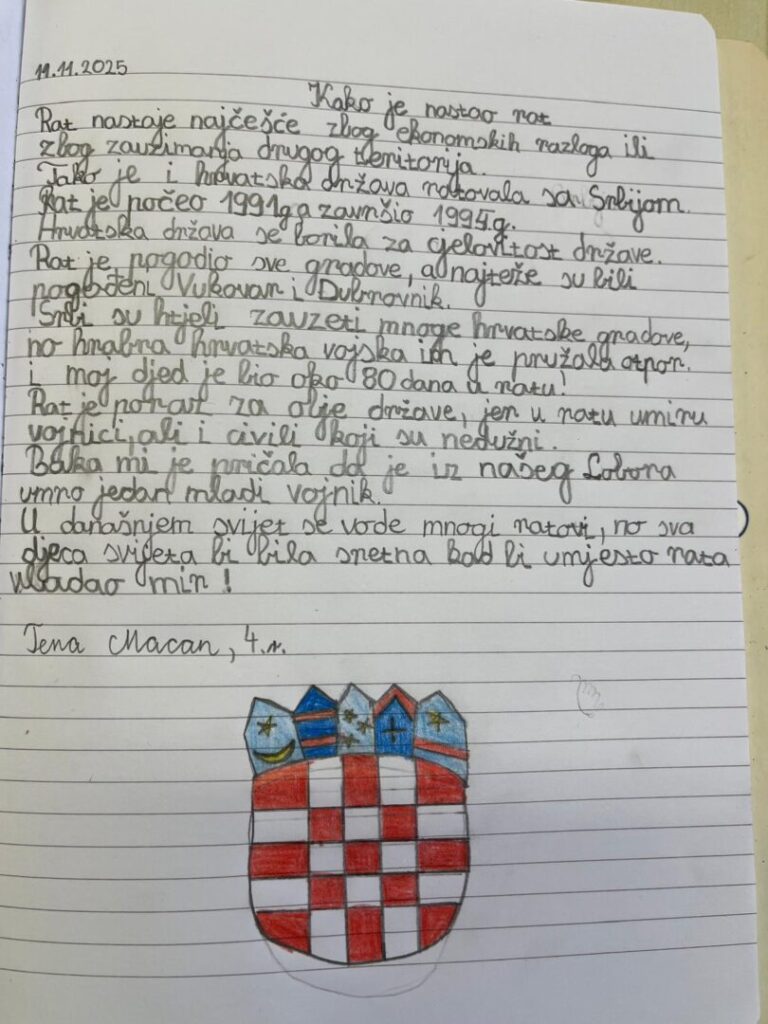 11.11.2025
Kako je nastao rat
Rat nastaje najčešće zbog ekonomskih razloga ili
zbog zauzimanja drugog teritorija.
Tako je i hrvatska država ratovala sa Srbijom.
Rat je počeo 1991.g a završio 1994.g.
Hrvatska država se borila za cjelovitost države.
Rat je pogodio sve gradove, a najteže su bili
pogođeni Vukovar i Dubrovnik.
Srbi su htjeli zauzeti mnoge hrvatske gradove,
no hrabra hrvatska vojska im je pružala otpor.
i moj djed je bio oko 80 dana u ratu!
Rat je poraz za obje države, jer u ratu umiru
vojnici, ali i civili koji su nedužni.
Baka mi je pričala da je iz našeg Lobora
umro jedan mladi vojnik.
U današnjem svijet se vode mnogi ratovi, no sva
djeca svijeta bi bila sretna kad bi umjesto rata
vladao mir!
Tena Macan, 4.r.